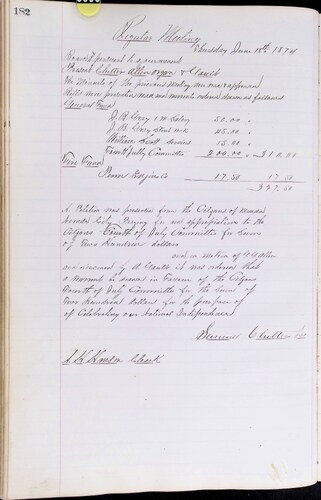 182
Regular Meeting
Thursday June 18th 1874
Board pursuant to agreement
Present Chuller Allen Organ & Gault
The Minutes of the previous meeting were read & approved
Bills were presented read and warrants ordered drawn as follows
General Fund
J. B. Gary 1 m Salary 50.00 "
J. B. Gary 45.00 "
William Scott Services 15.00 "
Fourth of July Committee 200.00 " 310.00
Fire Fund
Pum Engine Co 17.50 " 17.50
327.50
A Petition was presented from the Citizens of
Praying for an appropriation to the
Citizens Fourth of July Committee for Sum
of Two Hundred dollars
and on motion of G G Allen
and Seconded by A Gault it was ordered that
a Warrant be drawn in Favor of the Citizens
Fourth of July Committee for the Sum of
Two Hundred dollars for the purpose of
of Celebrating our National Independence
Clerk